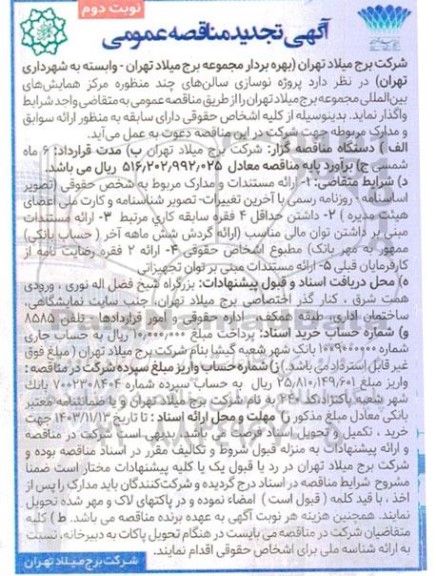 نوبت دوم
آگهی تجدید مناقصه عمومی
شرکت برج میلاد تهران (بهره بردار مجموعه برج میلاد تهران - وابسته به شهرداری
تهران) در نظر دارد پروژه نوسازی سالن‌های چند منظوره مرکز همایش‌های
بین‌المللی مجموعه برج میلاد تهران را از طریق مناقصه عمومی به متقاضی واجد شرایط
واگذار نماید. بدینوسیله از کلیه اشخاص حقوقی دارای سابقه به منظور ارائه سوابق
و مدارک مربوطه جهت شرکت در این مناقصه دعوت به عمل می‌آید.
الف) دستگاه مناقصه گزار: شرکت برج میلاد تهران ب) مدت قرارداد: ۶ ماه
شمسی ج) برآورد پایه مناقصه معادل ۵۱۶,۲۰۲,۹۹۲,۰۲۵ ریال می باشد.
د) شرایط متقاضی: ۱- ارائه مستندات و مدارک مربوط به شخص حقوقی (تصویر
اساسنامه - روزنامه رسمی با آخرین تغییرات- تصویر شناسنامه و کارت ملی اعضای
هیئت مدیره) ۲- داشتن حداقل ۴ فقره سابقه کاری مرتبط ۳- ارائه مستندات
مبنی بر داشتن توان مالی مناسب (ارائه گردش شش ماهه آخر (حساب بانکی)
ممهور به مهر بانک) مطبوع اشخاص حقوقی ۴- ارائه ۲ فقره رضایت نامه از
کارفرمایان قبلی ۵- ارائه مستندات مبنی بر توان تجهیزاتی
ه) محل دریافت اسناد و قبول پیشنهادات: بزرگراه شیخ فضل اله نوری، ورودی
همت شرق، کنار گذر اختصاصی برج میلاد تهران، جنب سایت نمایشگاهی،
ساختمان اداری، طبقه همکف، اداره حقوقی و امور قراردادها - تلفن ۸۵۸۵
و) شماره حساب خرید اسناد: پرداخت مبلغ ۱۰,۰۰۰,۰۰۰ ریال به حساب جاری
شماره بانک شهر شعبه گیشا بنام شرکت برج میلاد تهران (مبلغ فوق
غیر قابل استرداد می باشد) ز) شماره حساب واریز مبلغ سپرده شرکت در مناقصه:
واریز مبلغ ۲۵,۸۱۰,۱۴۹,۶۰۱ ریال به حساب سپرده شماره ۷۰۰۲۳۰۸۴۰۴ بانک
شهر شعبه به نام شرکت برج میلاد تهران و یا ضمانتنامه معتبر
بانکی معادل مبلغ مذکور ح) مهلت و محل ارائه اسناد: تا تاریخ ۱۴۰۳/۱۱/۱۳ جهت
خرید، تکمیل و تحویل اسناد فرصت می باشد. بدیهی است شرکت در مناقصه
و ارائه پیشنهادات به منزله قبول شروط و تکالیف مقرر در اسناد مناقصه بوده و
شرکت برج میلاد تهران در رد یا قبول یک یا کلیه پیشنهادات مختار است ضمنا
مشروح شرایط مناقصه در اسناد درج گردیده و شرکت‌کنندگان باید مدارک را پس از
اخذ، با قید کلمه (قبول است) امضاء نموده و در پاکتهای لاک و مهر شده تحویل
نمایند. همچنین هزینه هر نوبت آگهی به عهده برنده مناقصه می باشد. ط) کلیه
متقاضیان شرکت در مناقصه می بایست در هنگام تحویل پاکات به دبیرخانه، نسبت
به ارائه شناسه ملی برای اشخاص حقوقی اقدام نمایند.
شرکت برج میلاد تهران